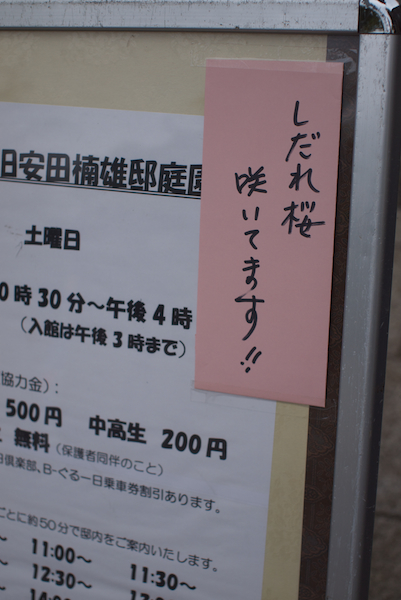 しだれ桜
咲いてます!!
旧安田楠雄邸庭園
土曜日
0時30分～午後4時
（入館は午後3時まで）
協力金）：
500円 中高生 200円
無料（保護者同伴のこと）
倶楽部、B-ぐる一日乗車券割引あります。
ごとに約50分で邸内をご案内いたします。
11:00～ 11:30～
12:30～ 13: